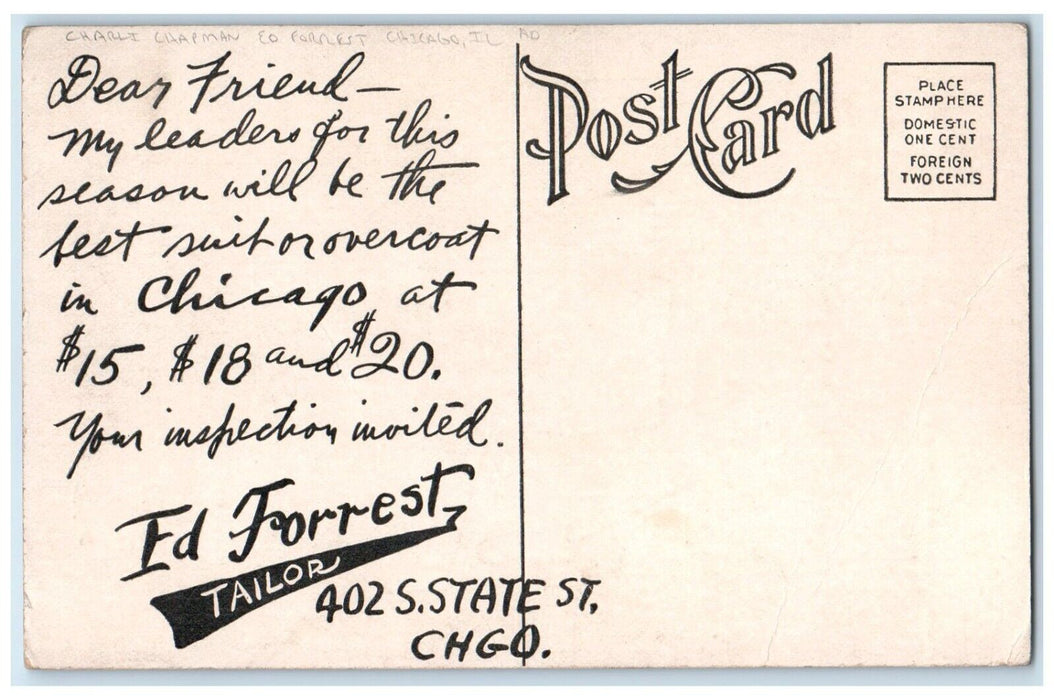 CHARLI CHAPMAN ED FORREST CHICAGO, IL AD
Dear Friend—
My leaders for this
season will be the
best suit or overcoat
in Chicago at
$15, $18 and $20.
Your inspection invited.
Ed Forrest,
TAILOR
402 S. STATE ST.
CHGO.
Post Card
PLACE
STAMP HERE
DOMESTIC
ONE CENT
FOREIGN
TWO CENTS